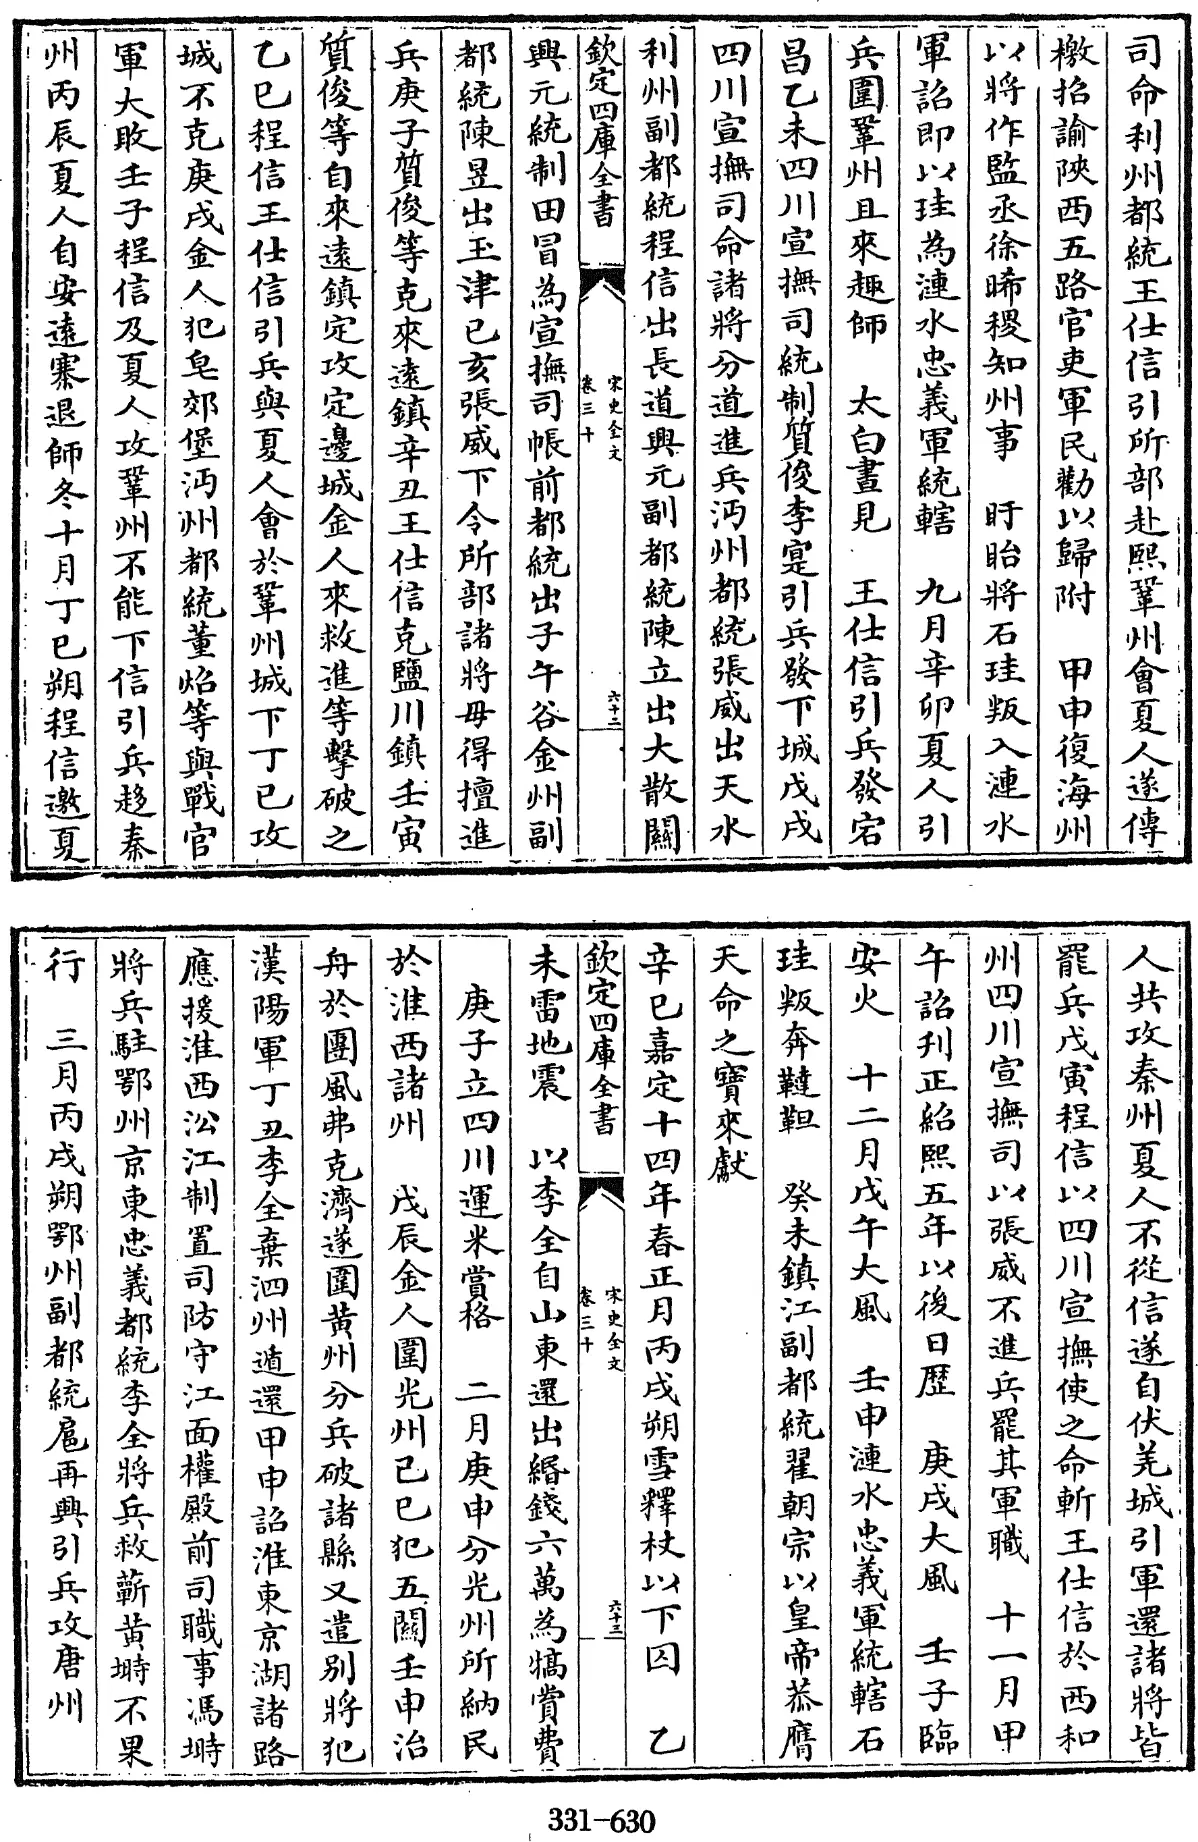 司命利州都統王仕信引所部赴熙鞏州會夏人遂傳
檄招諭陜西五路官吏軍民勸以歸附　甲申復海州
以將作監丞徐晞稷知州事　盱眙將石珪叛入漣水
軍詔即以珪為漣水忠義軍統轄　九月辛卯夏人引
兵圍鞏州且來趣師　太白晝見　王仕信引兵發宕
昌乙未四川宣撫司統制質俊李寔引兵發下城戊戌
四川宣撫司命諸將分道進兵沔州都統張威出天水
利州副都統程信出長道興元副都統陳立出大散關
欽定四庫全書
宋史全文
卷三十
六十二
興元統制田冒為宣撫司帳前都統出子午谷金州副
都統陳昱出玉津已亥張威下令所部諸將毋得擅進
兵庚子質俊等克來遠鎮辛丑王仕信克鹽川鎮壬寅
質俊等自來遠鎮定攻定邊城金人來救進等擊破之
乙巳程信王仕信引兵與夏人會於鞏州城下丁巳攻
城不克庚戌金人犯皂郊堡沔州都統董炤等與戰官
軍大敗壬子程信及夏人攻鞏州不能下信引兵趍秦
州丙辰夏人自安遠寨退師冬十月丁巳朔程信邀夏
人共攻秦州夏人不從信遂自伏羌城引軍還諸將皆
罷兵戊寅程信以四川宣撫使之命斬王仕信於西和
州四川宣撫司以張威不進兵罷其軍職　十一月甲
午詔刋正紹熙五年以後日歷　庚戌大風　壬子臨
安火　十二月戊午大風　壬申漣水忠義軍統轄石
珪叛奔韃靼　癸未鎮江副都統翟朝宗以皇帝恭膺
天命之寶來獻
辛巳嘉定十四年春正月丙戌朔雪釋杖以下囚　乙
欽定四庫全書
宋史全文
卷三十
六十三
未雷地震　以李全自山東還出緡錢六萬為犒賞費
庚子立四川運米賞格　二月庚申分光州所納民
於淮西諸州　戊辰金人圍光州己巳犯五關壬申治
舟於團風弗克濟遂圍黄州分兵破諸縣又遣别將犯
漢陽軍丁丑李全棄泗州遁還甲申詔淮東京湖諸路
應援淮西沿江制置司防守江面權殿前司職事馮塒
將兵駐鄂州京東忠義都統李全將兵救蘄黄塒不果
行　三月丙戌朔鄂州副都統扈再興引兵攻唐州
331-630